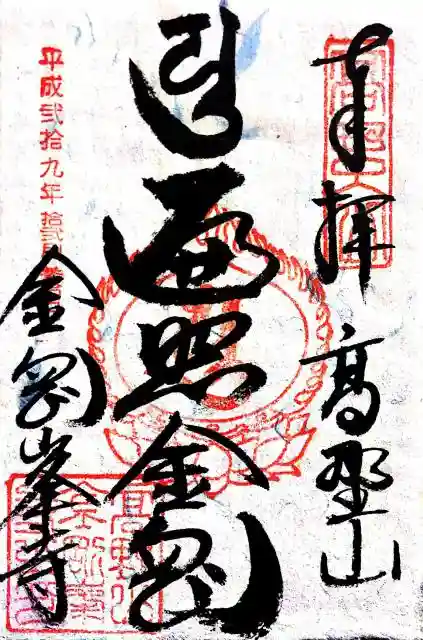 奉拝
高野山
遍照金剛
金剛峯寺
平成弐拾九年拾弐